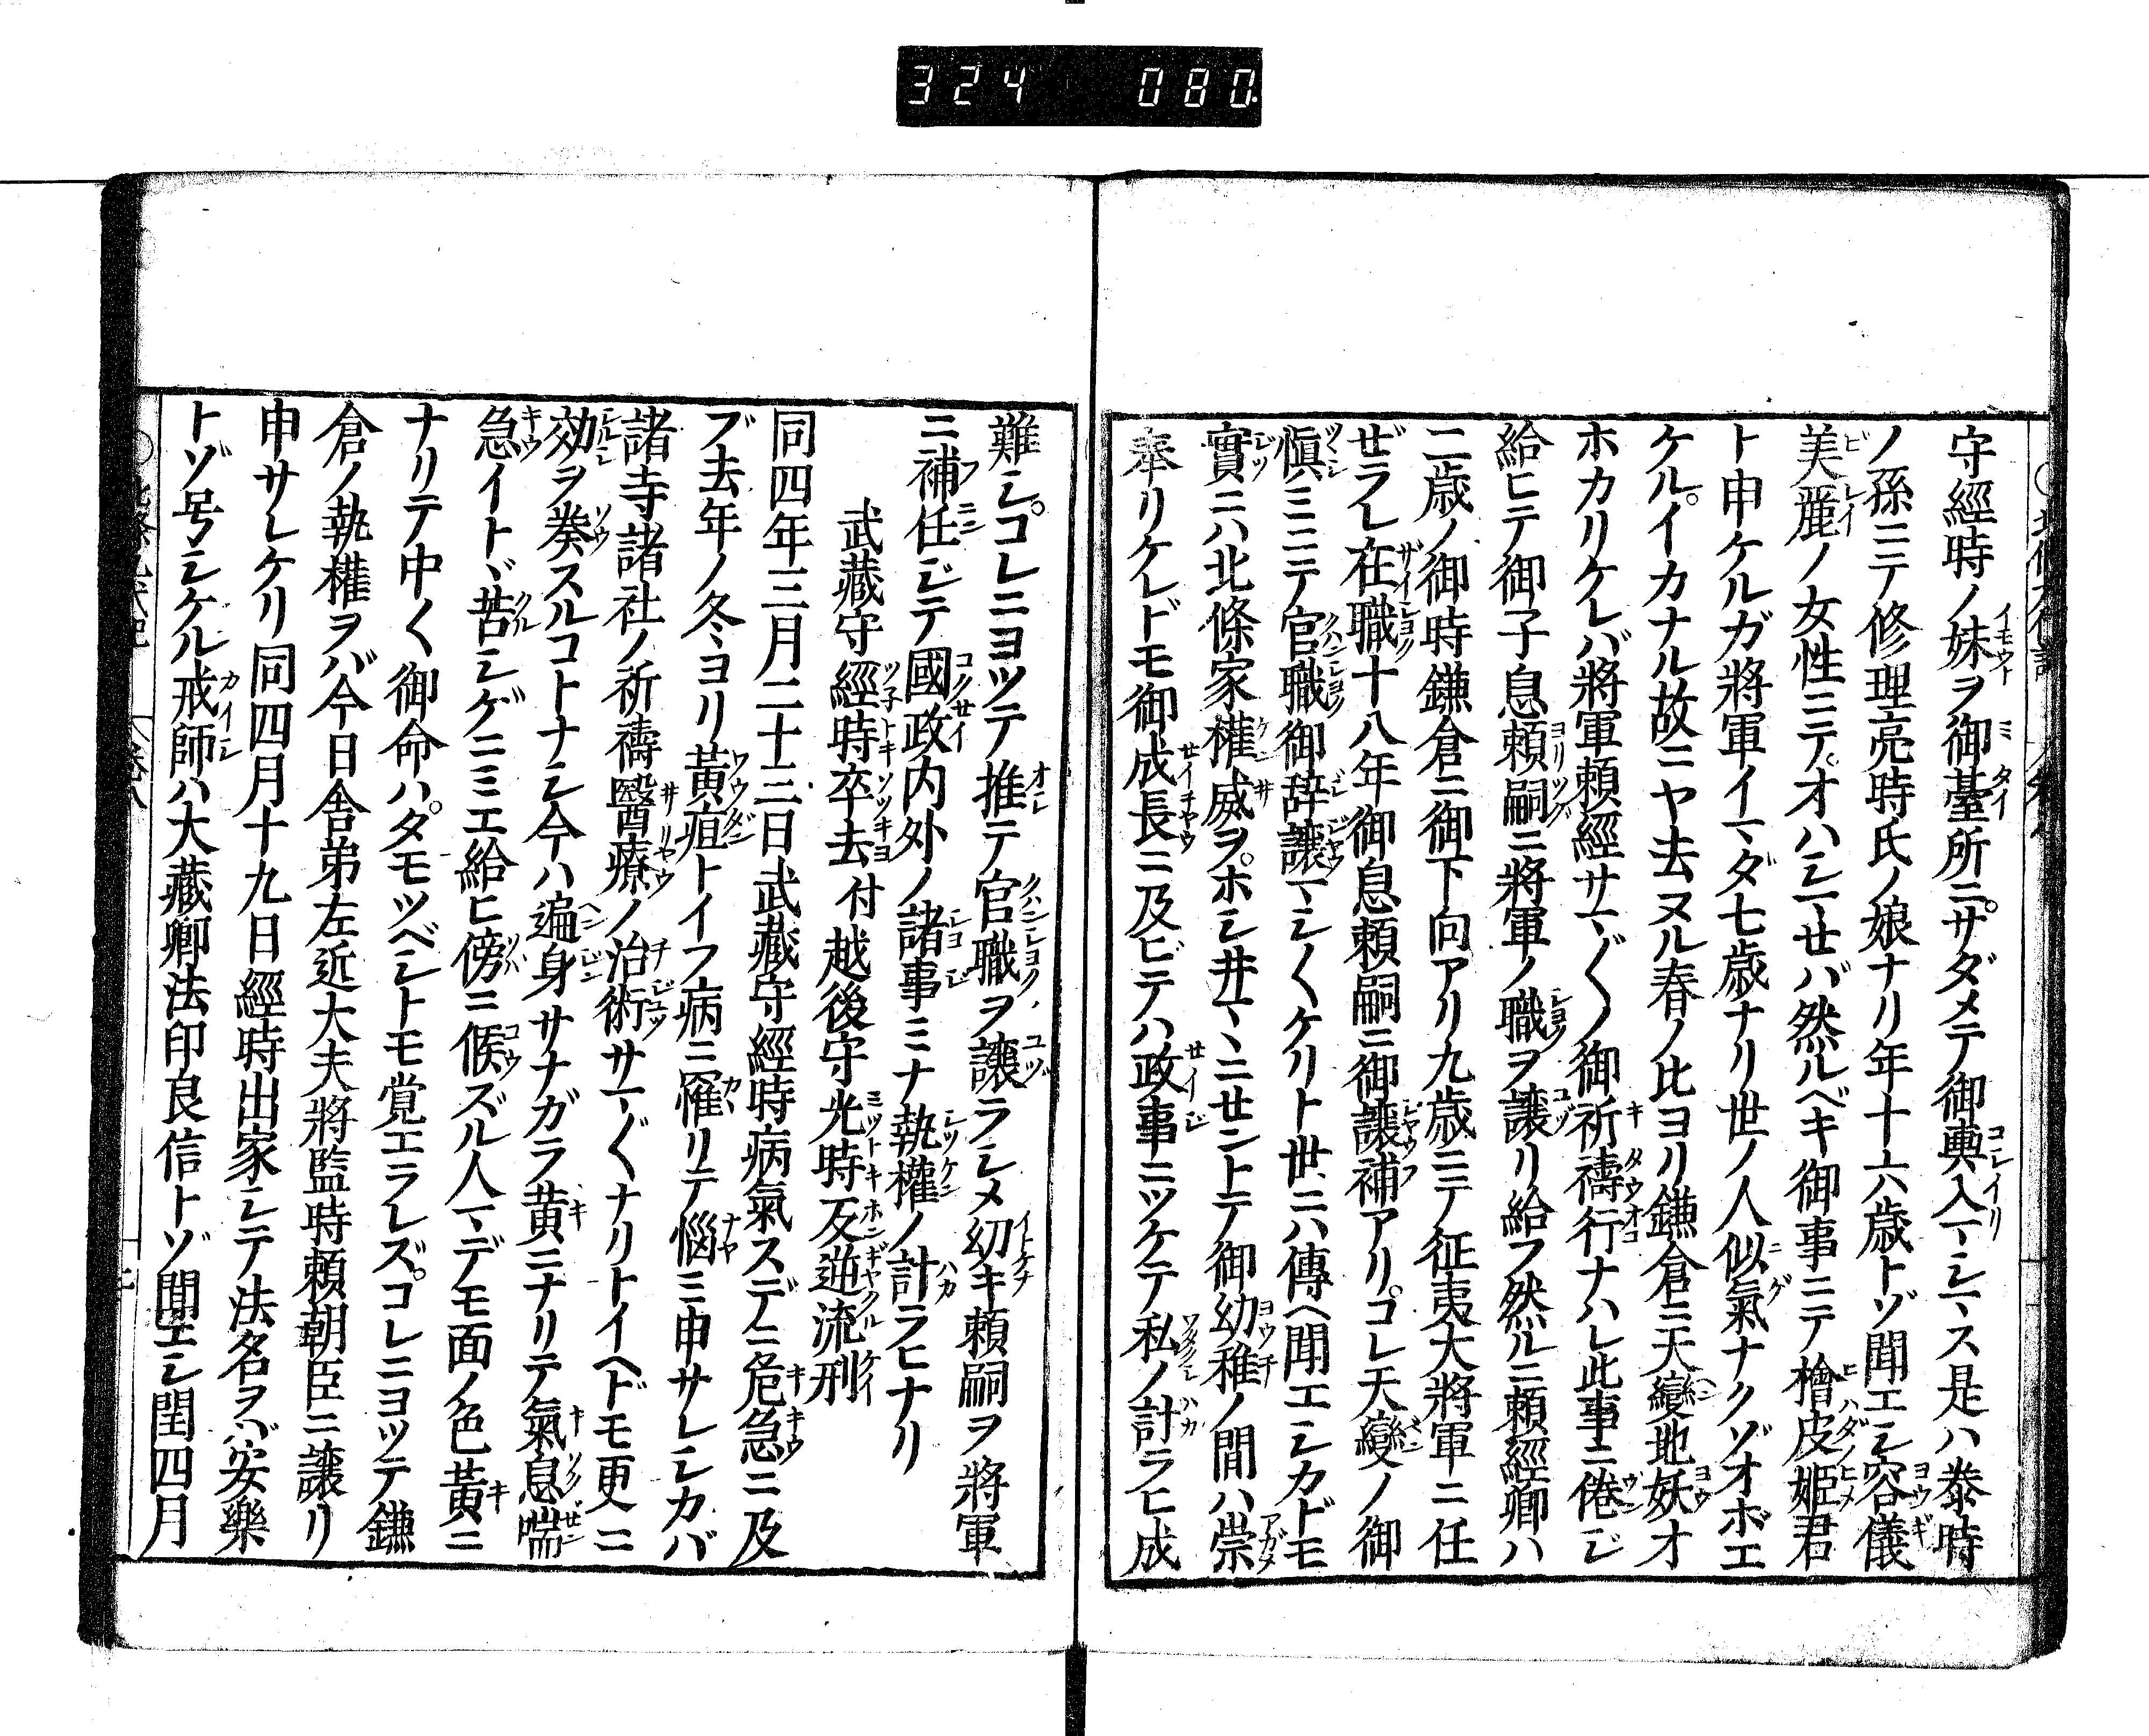 324 080
守經時ノ妹ヲ御臺所ニサダメテ御輿入マシマス是ハ泰時
ノ孫ニテ修理亮時氏ノ娘ナリ年十六歳トゾ聞エシ容儀
美麗ノ女性ニテオハシマセバ然ルベキ御事ニテ檜皮姫君
ト申ケルガ將軍イマダ七歳ナリ世ノ人似氣ナクゾオボエ
ケル。イカナル故ニヤ去ヌル春ノ比ヨリ鎌倉ニ天變地妖オ
ホカリケレバ將軍頼經サマ〲ノ御祈禱行ナハレ此事ニ倦ジ
給ヒテ御子息頼嗣ニ將軍ノ職ヲ譲リ給フ然ルニ頼經卿ハ
二歳ノ御時鎌倉ニ御下向アリ九歳ニテ征夷大將軍ニ任
ゼラレ在職十八年御息頼嗣ニ御譲補アリ。コレ天變ノ御
愼ミニテ官職御辞譲マシ〱ケリト世ニハ傳ヘ聞エシカドモ
實ニハ北條家權威ヲ。ホシヰマヽニセントテ御幼稚ノ間ハ崇
奉リケレドモ御成長ニ及ビテハ政事ニツケテ私ノ計ラヒ成
難シ。コレニヨツテ推テ官職ヲ譲ラシメ幼キ頼嗣ヲ將軍
ニ補任ジテ國政内外ノ諸事ミナ執權ノ計ラヒナリ
武藏守經時卒去付越後守光時反逆流刑
同四年三月二十三日武藏守經時病氣スデニ危急ニ及
ブ去年ノ冬ヨリ黄疸トイフ病ニ罹リテ惱ミ申サレシカバ
諸寺諸社ノ祈禱醫療ノ治術サマ〲ナリトイヘドモ更ニ
効ヲ奏スルコトナシ今ハ遍身サナガラ黄ニナリテ氣息喘
急イトヾ苦シゲニミエ給ヒ傍ニ候ズル人マデモ面ノ色黄ニ
ナリテ中〱御命ハ。タモツベシトモ覚エラレズ。コレニヨツテ鎌
倉ノ執權ヲバ今日舎弟左近大夫將監時頼朝臣ニ譲リ
申サレケリ同四月十九日經時出家シテ法名ヲバ安樂
トゾ号シケル戒師ハ大藏卿法印良信トゾ聞エシ閏四月